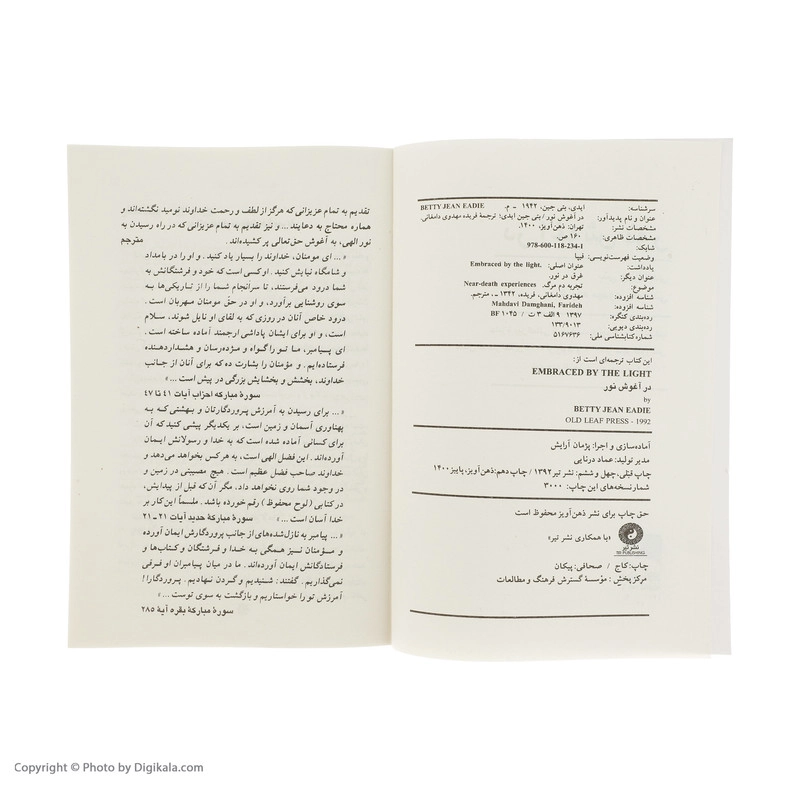 سرشناسه: ایدی، بتی جین، ۱۹۴۲ ـ م. BETTY JEAN EADIE
عنوان و نام پدیدآور: در آغوش نور / بتی جین ایدی؛ ترجمهٔ فریده مهدوی دامغانی.
مشخصات نشر: تهران: ذهن‌آویز، ۱۴۰۰.
مشخصات ظاهری: ۱۶۰ ص.
شابک: 978-600-118-234-1
وضعیت فهرست‌نویسی: فیپا
یادداشت: عنوان اصلی: Embraced by the light.
عنوان دیگر: غرق در نور.
موضوع: تجربه دم مرگ. Near-death experiences
شناسه افزوده: مهدوی دامغانی، فریده، ۱۳۴۲ ـ ، مترجم.
شناسه افزوده: Mahdavi Damghani, Farideh
رده‌بندی کنگره: ۱۳۹۷ ۹ الف ۳ ت / BF ۱۰۴۵
رده‌بندی دیویی: ۱۳۳/۹۰۱۳
شماره کتابشناسی ملی: ۵۱۶۷۶۳۶
این کتاب ترجمه‌ای است از:
EMBRACED BY THE LIGHT
در آغوش نور
by
BETTY JEAN EADIE
OLD LEAF PRESS - 1992
آماده‌سازی و اجرا: پژمان آرایش
مدیر تولید: عماد درنایی
چاپ قبلی، چهل و ششم: نشر تیر ۱۳۹۲ / چاپ دهم: ذهن‌آویز، پاییز ۱۴۰۰
شمار نسخه‌های این چاپ: ۳۰۰۰
حق چاپ برای نشر ذهن‌آویز محفوظ است
«با همکاری نشر تیر»
نشر تیر
TIR PUBLISHING
چاپ: کاج / صحافی: پیکان
مرکز پخش: مؤسسهٔ گسترش فرهنگ و مطالعات
تقدیم به تمام عزیزانی که هرگز از لطف و رحمت خداوند نومید نگشته‌اند و
هماره محتاج به دعایند ... و نیز تقدیم به تمام عزیزانی که در راه رسیدن به
نور الهی، به آغوش حق‌تعالی پر کشیده‌اند.
مترجم
«... ای مومنان، خداوند را بسیار یاد کنید. و او را در بامداد
و شامگاه نیایش کنید. او کسی است که خود و فرشتگانش به
شما درود می‌فرستند، تا سرانجام شما را از تاریکی‌ها به
سوی روشنایی برآورد، و او در حقّ مومنان مهربان است.
درود خاص آنان در روزی که به لقای او نایل شوند، سلام
است، و او برای ایشان پاداشی ارجمند آماده ساخته است.
ای پیامبر، ما تو را گواه و مژده‌رسان و هشداردهنده
فرستاده‌ایم. و مؤمنان را بشارت ده که برای آنان از جانب
خداوند، بخشش و بخشایش بزرگی در پیش است ...»
سورهٔ مبارکه احزاب آیات ۴۱ تا ۴۷
«... برای رسیدن به آمرزش پروردگارتان و بهشتی که به
پهناوری آسمان و زمین است، بر یکدیگر پیشی کنید که آن
برای کسانی آماده شده است که به خدا و رسولانش ایمان
آورده‌اند. این فضل الهی است، به هرکس بخواهد می‌دهد و
خداوند صاحب فضل عظیم است. هیچ مصیبتی در زمین و
در وجود شما روی نخواهد داد، مگر آن که قبل از پیدایش،
در کتابی (لوح محفوظ) رقم خورده باشد. مل‍سماً این کار بر
خدا آسان است ...» سورهٔ مبارکهٔ حدید آیات ۲۱ ـ ۲۱
«... پیامبر به نازل‌شده‌های از جانب پروردگارش ایمان آورده
و مؤمنان نیز همگی به خدا و فرشتگان و کتاب‌ها و
فرستادگانش ایمان آورده‌اند. ما در میان پیامبران او فرقی
نمی‌گذاریم. گفتند: شنیدیم و گردن نهادیم. پروردگارا!
آمرزش تو را خواستاریم و بازگشت به سوی توست ...»
سورهٔ مبارکهٔ بقره آیهٔ ۲۸۵
Copyright © Photo by Digikala.com